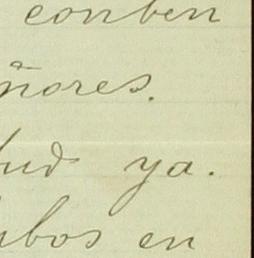 conben
ñores.
tud ya.
mbos en